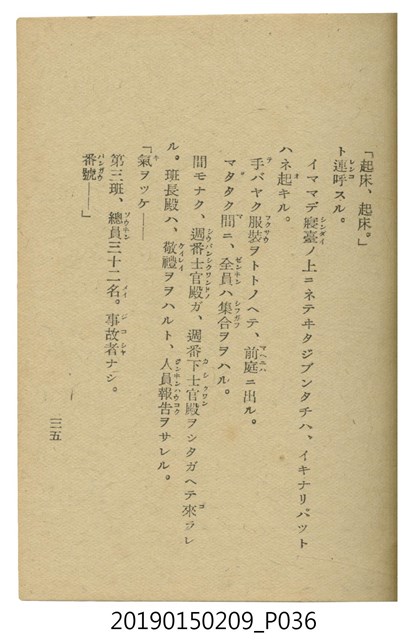 「起床、起床。」
ト連呼スル。
イママデ寢臺ノ上ニネテヰタジブンタチハ、イキナリパツト
ハネ起キル。
手バヤク服裝ヲトトノヘテ、前庭ニ出ル。
マタタク間ニ、全員ハ集合ヲヲハル。
間モナク、週番士官殿ガ、週番下士官殿ヲシタガヘテ來ラレ
ル。班長殿ハ、敬禮ヲヲハルト、人員報告ヲサレル。
「氣ヲツケ――
第三班、總員三十二名。事故者ナシ。
番號――」
三五
20190150209_P036